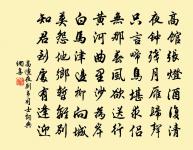 高館張燈酒復清
夜鐘殘月雁歸聲
只言啼鳥堪求侶
無那春風欲送行
黃河曲裏沙為岸
白馬津邊柳向城
莫怨他鄉暫離別
知君到處有逢迎
高適夜別韋司士詞典
網集